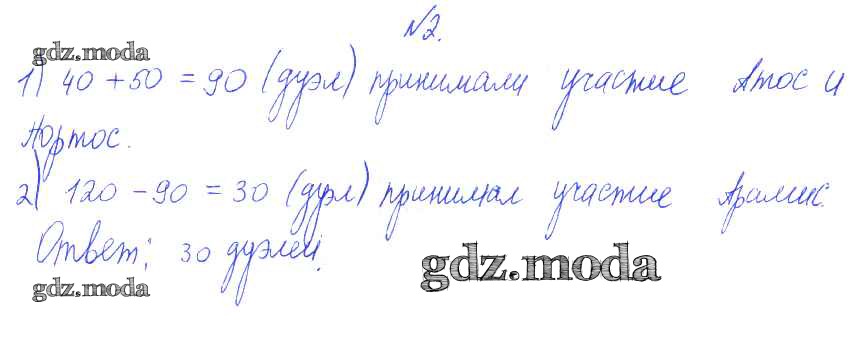 №2.
gdz.moda
1) 40 + 50 = 90 (дуэл) принимали участие Атос и
Портос.
2) 120 - 90 = 30 (дуэл) принимал участие Арамис.
Ответ: 30 дуэлей.
gdz.moda
gdz.moda